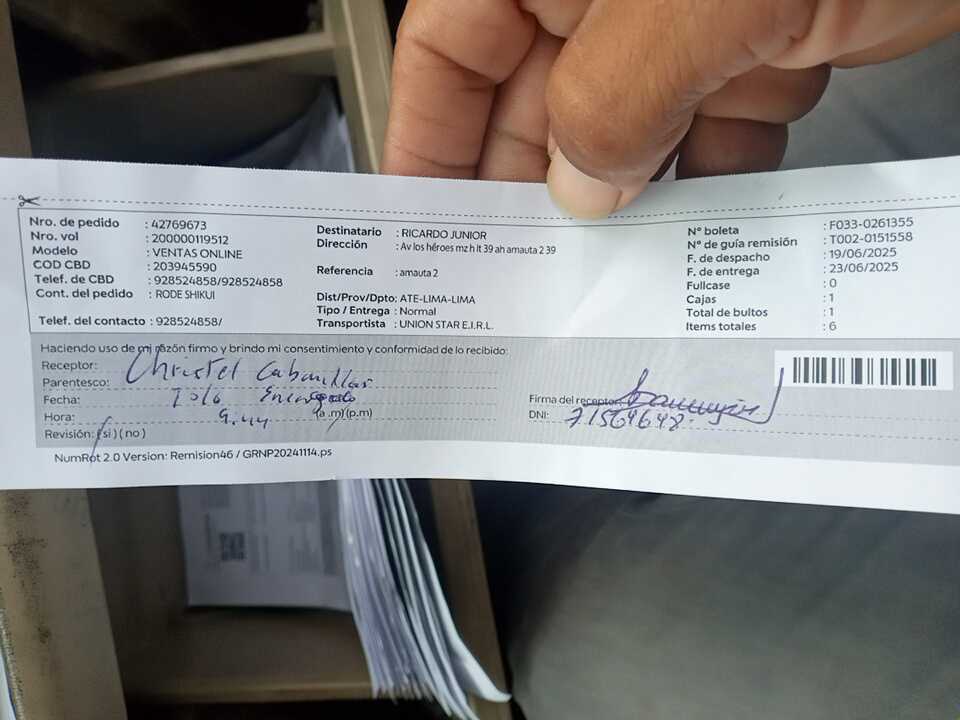 Nro. de pedido : 42769673
Nro. vol : 200000119512
Modelo : VENTAS ONLINE
COD CBD : 203945590
Telef. de CBD : 928524858/928524858
Cont. del pedido : RODE SHIKUI
Telef. del contacto : 928524858/
Destinatario : RICARDO JUNIOR
Dirección : Av los héroes mz h lt 39 ah amauta 2 39
Referencia : amauta 2
Dist/Prov/Dpto: ATE-LIMA-LIMA
Tipo / Entrega : Normal
Transportista : UNION STAR E.I.R.L.
N° boleta : F033-0261355
N° de guía remisión : T002-0151558
F. de despacho : 19/06/2025
F. de entrega : 23/06/2025
Fullcase : 0
Cajas : 1
Total de bultos : 1
Items totales : 6
Haciendo uso de mi razón firmo y brindo mi consentimiento y conformidad de lo recibido:
Receptor: Christel Cabanillas
Parentesco:
Fecha:
Hora: 9:44 (a.m)(p.m)
Revisión: (si) (no)
Firma del receptor:
DNI: 71564648
NumRot 2.0 Version: Remision46 / GRNP20241114.ps